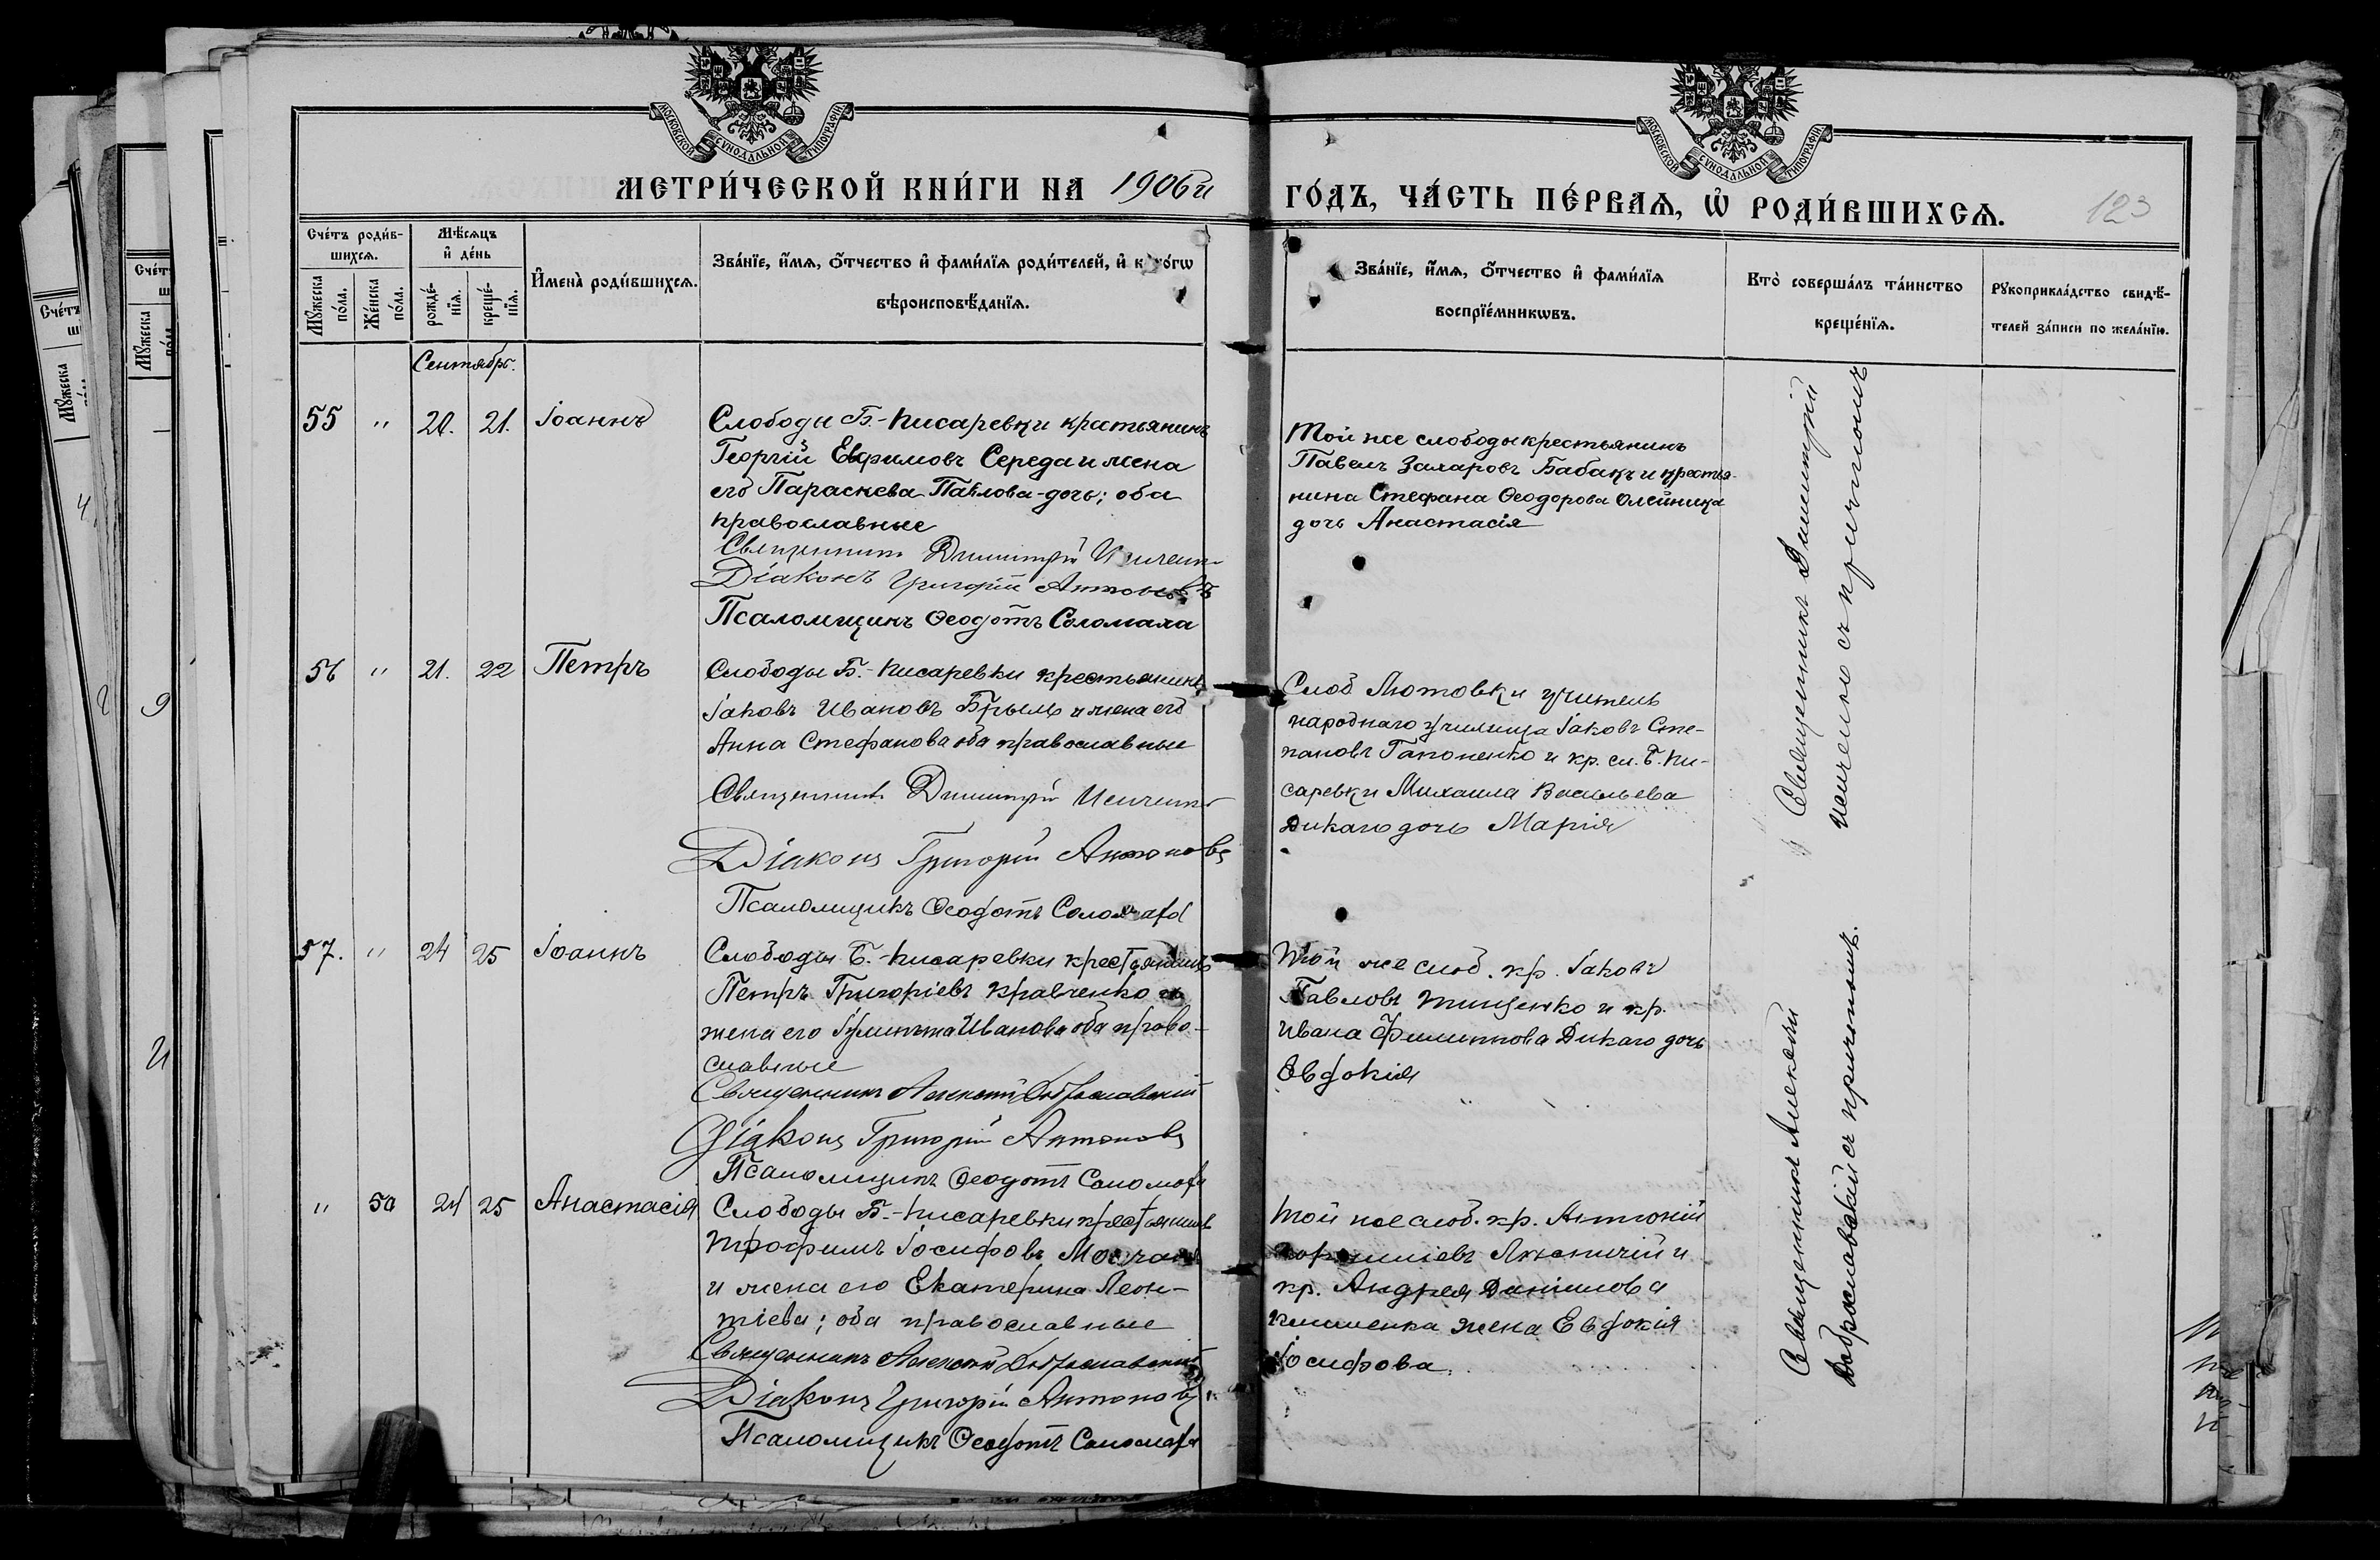 МОСКОВСКОЙ СѴНОДАЛЬНОЙ ТИПОГРАФІИ
МОСКОВСКОЙ СѴНОДАЛЬНОЙ ТИПОГРАФІИ
МЕТРИ́ЧЕСКОЙ КНИ́ГИ НА 1906й
ГО́ДЪ, ЧА́СТЬ ПЕ́РВАѦ, Ѿ РОДИ́ВШИХСѦ.
123
Сче́тъ роди́в-
шихсѧ.
Мꙋ́жеска
по́ла.
Же́нска
по́ла.
Мѣ́сѧцъ
и҆ де́нь
рожде́-
нїѧ.
креще́-
нїѧ.
И҆мена̀ роди́вшихсѧ.
Зва́нїе, и҆́мѧ, ѻ҆́тчество и҆ фами́лїѧ роди́телей, и҆ како́гѡ
вѣроисповѣ́данїѧ.
Зва́нїе, и҆́мѧ, ѻ҆́тчество и҆ фами́лїѧ
воспрїе́мникѡвъ.
Кто̀ соверша́лъ та́инство
креще́нїѧ.
Рꙋкоприкла́дство свидѣ́-
телей за́писи по жела́нїю.
Сентябрь.
55 " 20. 21. Іоаннъ
Слободы Б.-Писаревки крестьянинъ
Георгій Евфимовъ Середа и жена
его Параскева Павлова-дочь; оба
православные
Священникъ Димитрій Исиченко
Діаконъ Григорій Антоновъ
Псаломщикъ Ѳеодотъ Соломаха
Той же слободы крестьянинъ
Павелъ Захаровъ Бабакъ и крестья-
нина Стефана Ѳеодорова Олейника
дочь Анастасія
56 " 21. 22 Петръ
Слободы Б.-Писаревки крестьянинъ
Іаковъ Ивановъ Брыль и жена его
Анна Стефанова оба православные
Священникъ Димитрій Исиченко
Діаконъ Григорій Антоновъ
Псаломщикъ Ѳеодотъ Соломаха
Слоб Лютовки учитель
народнаго училища Іаковъ Сте-
пановъ Гапоненко и кр. сл. Б. Пи-
саревки Михаила Васильева
Дикаго дочь Марія
Священникъ Димитрій
Исиченко съ причтомъ
57. " 24 25 Іоаннъ
Слободы Б.-Писаревки крестьянинъ
Петръ Григоріевъ Кравченко и
жена его Гулинъта Иванова оба право-
славные
Священникъ Алексій Доброславскій
Діаконъ Григорій Антоновъ
Псаломщикъ Ѳеодотъ Соломаха
Той же слоб. кр. Іаковъ
Павловъ Тищенко и кр.
Ивана Филиппова Дикаго дочь
Евдокія
" 50 24 25 Анастасія
Слободы Б.-Писаревки крестьянинъ
Трофимъ Іосифовъ
и жена его Екатерина Леон-
тіева; оба православные
Священникъ Алексій Доброславскій
Діаконъ Григорій Антоновъ
Псаломщикъ Ѳеодотъ Соломаха
Той же слоб. кр. Антоній
и
кр. Андрея Даніилова
жена Евдокія
Іосифова.
Священникъ Алексій
Доброславскій съ причтомъ.